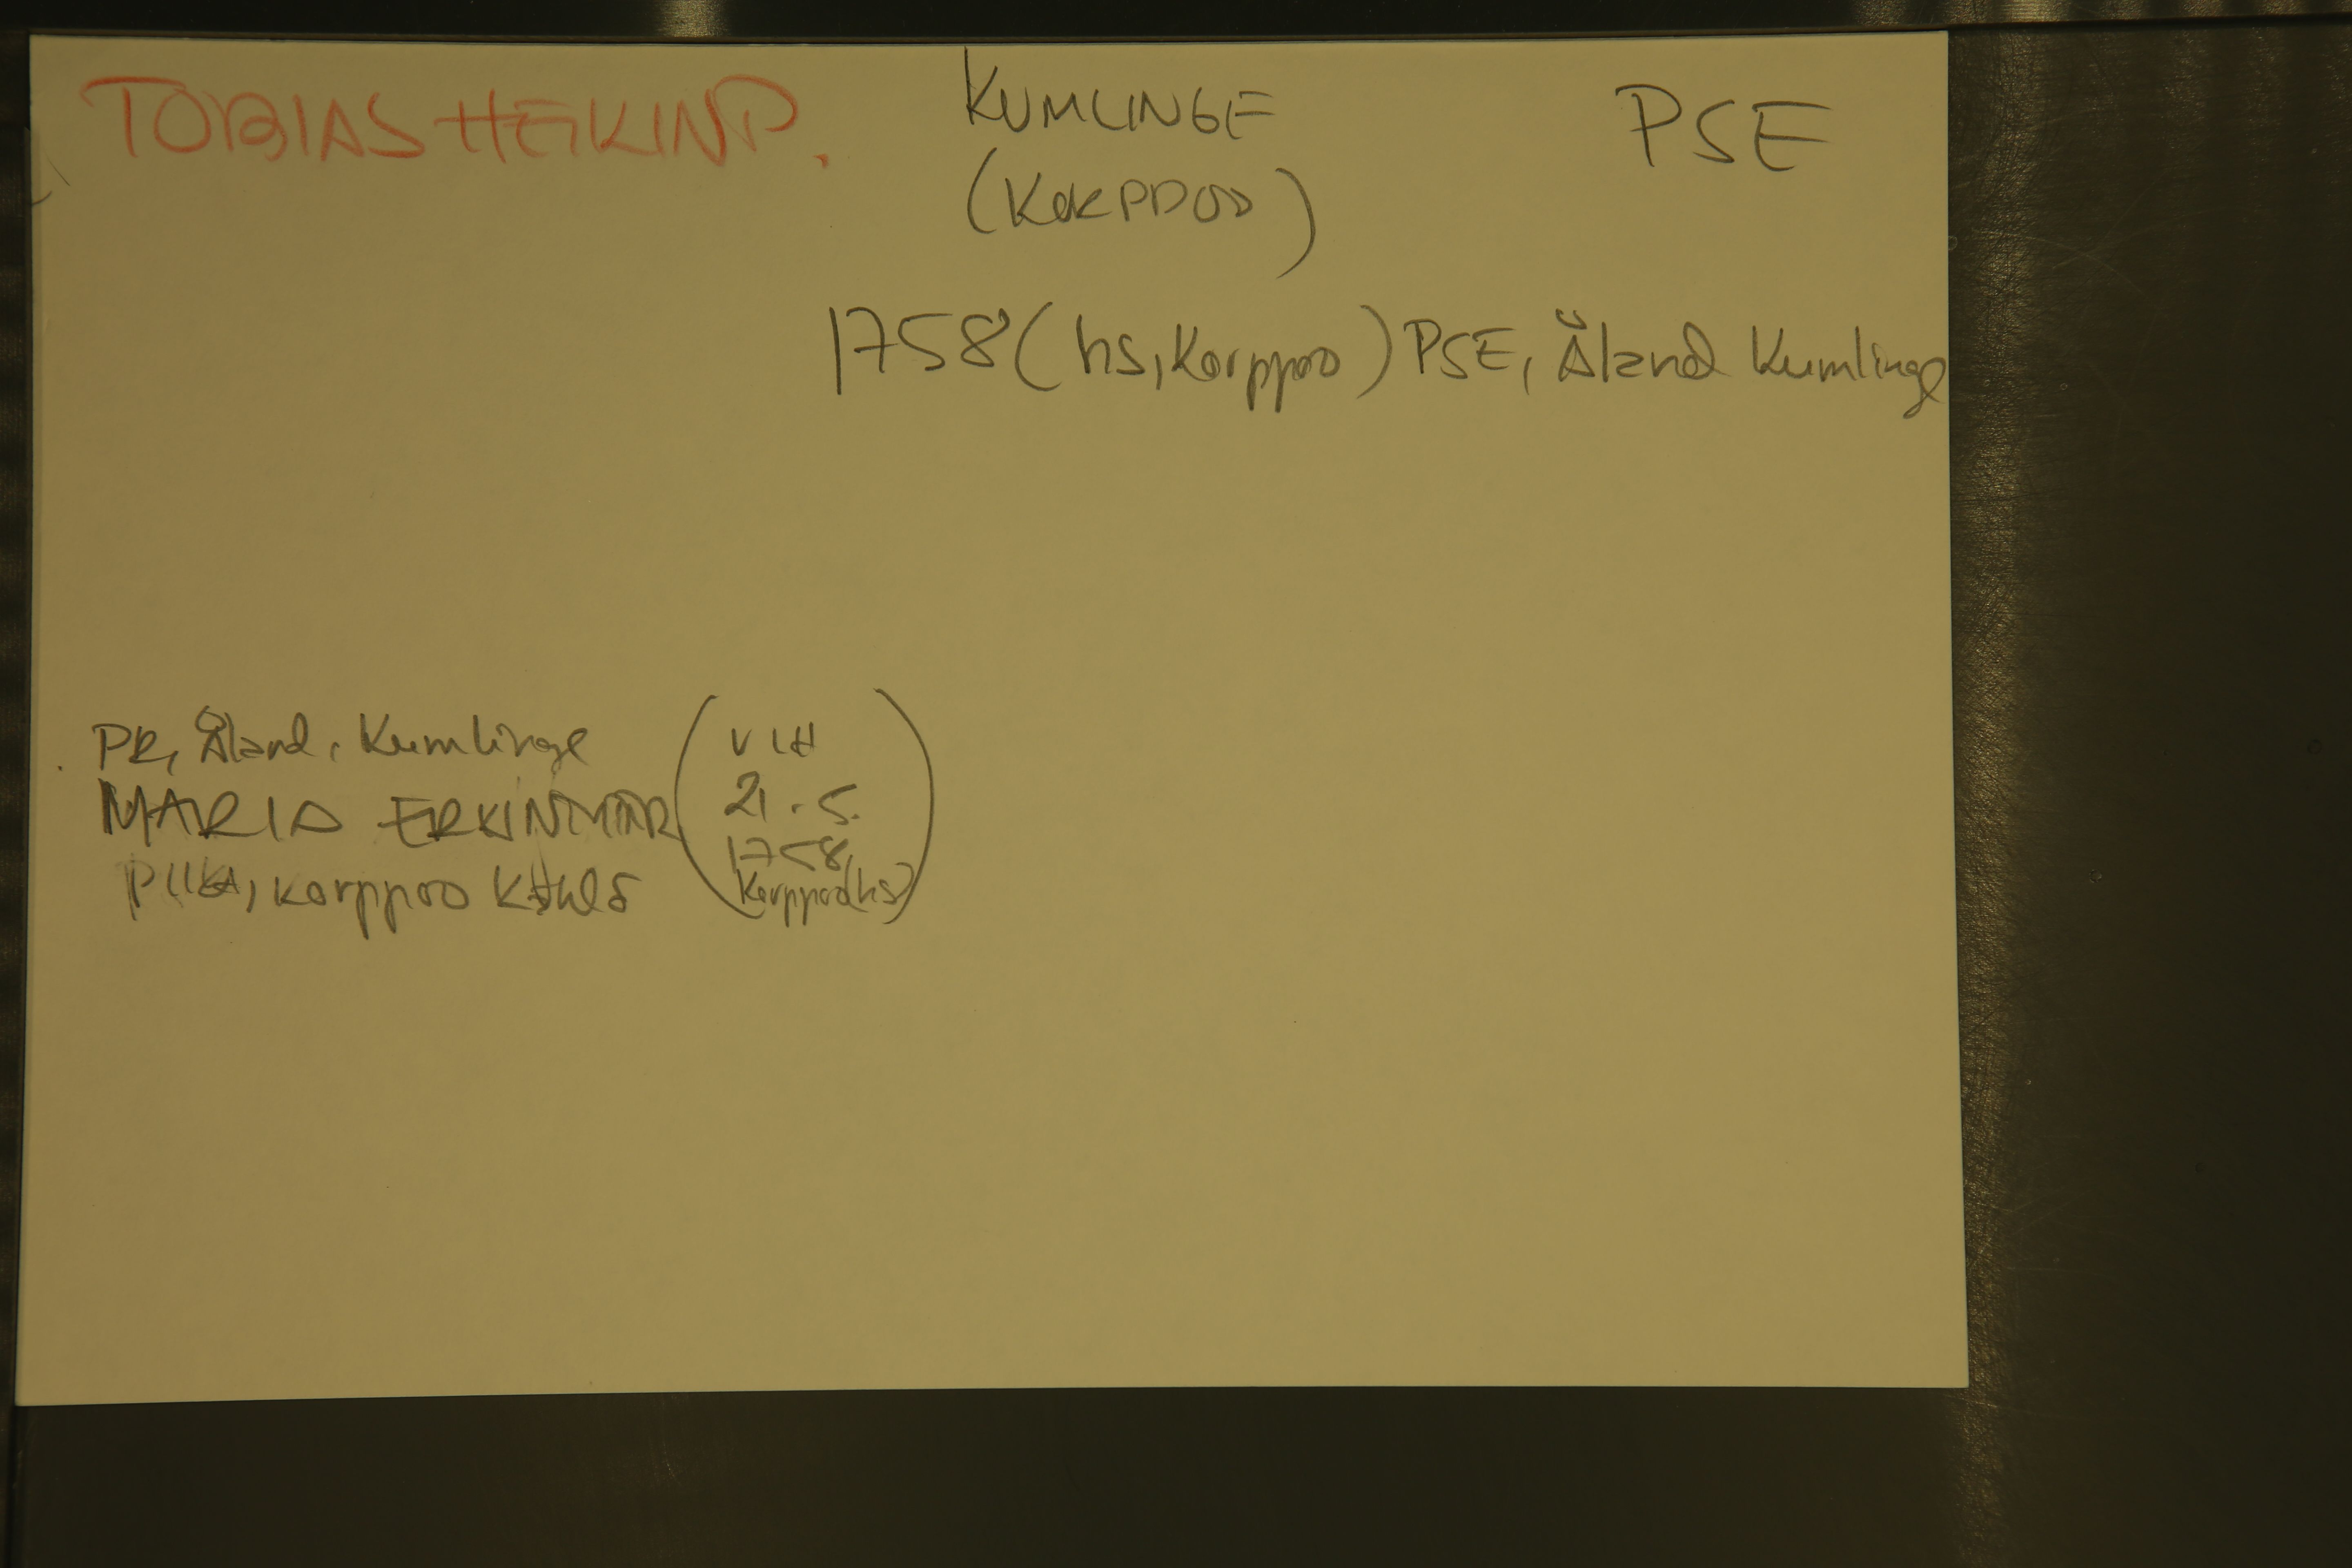 TOBIAS HEIKINP.
KUMLINGE
(KORPPOO)
PSE
1758 (hs, Korppoo) PSE, Åland Kumlinge
PR, Åland, Kumlinge
MARIA ERKINTYTÄR
PIIKA, Korppoo
(VIH
21.5.
1758,
Korppoo(hs))